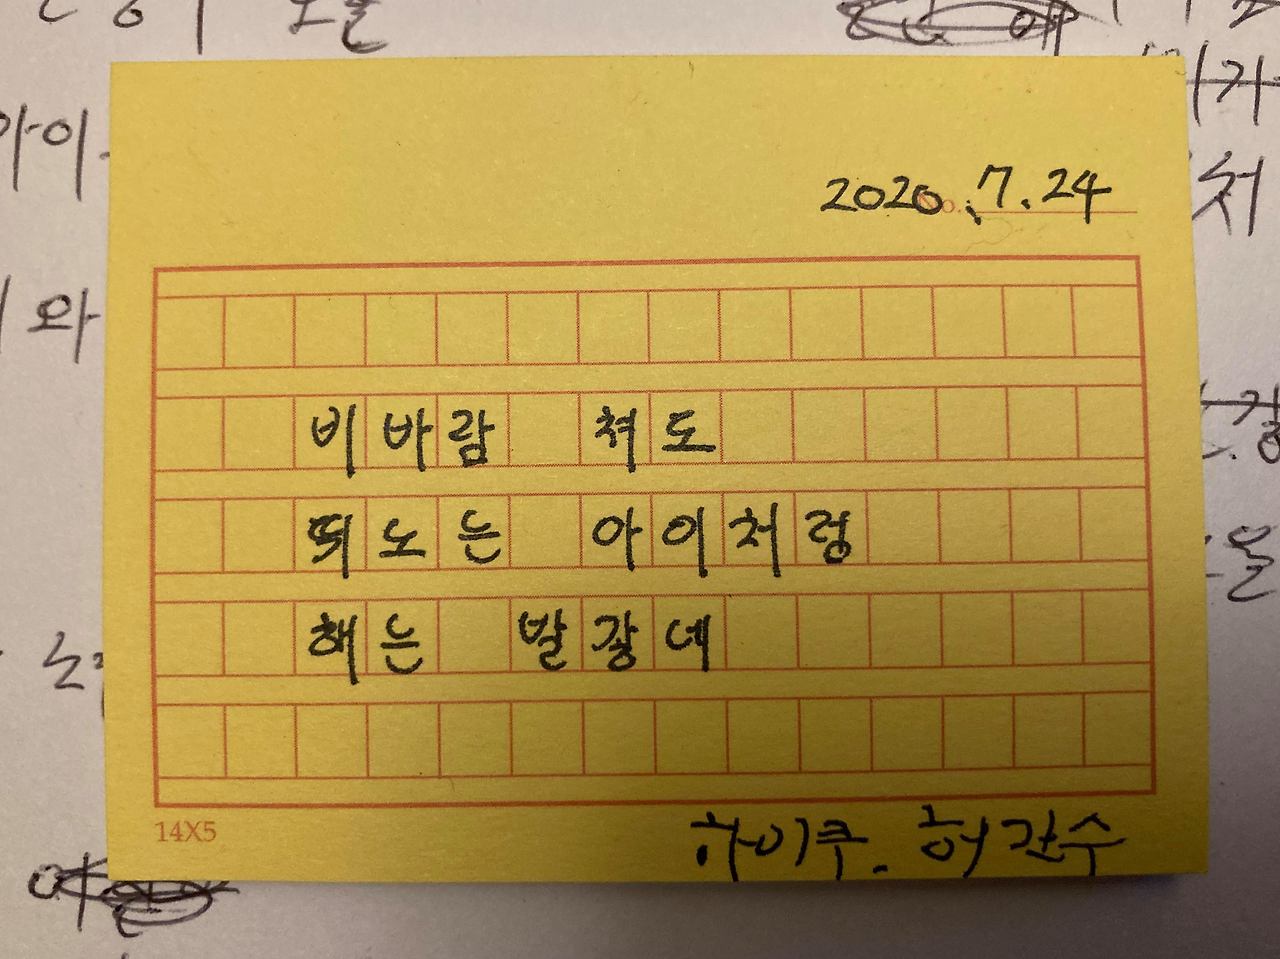 2020.7.24
No.
아이
와
비바람 쳐도
뛰노는 아이처럼
해는 발갛네
14X5
하이쿠.